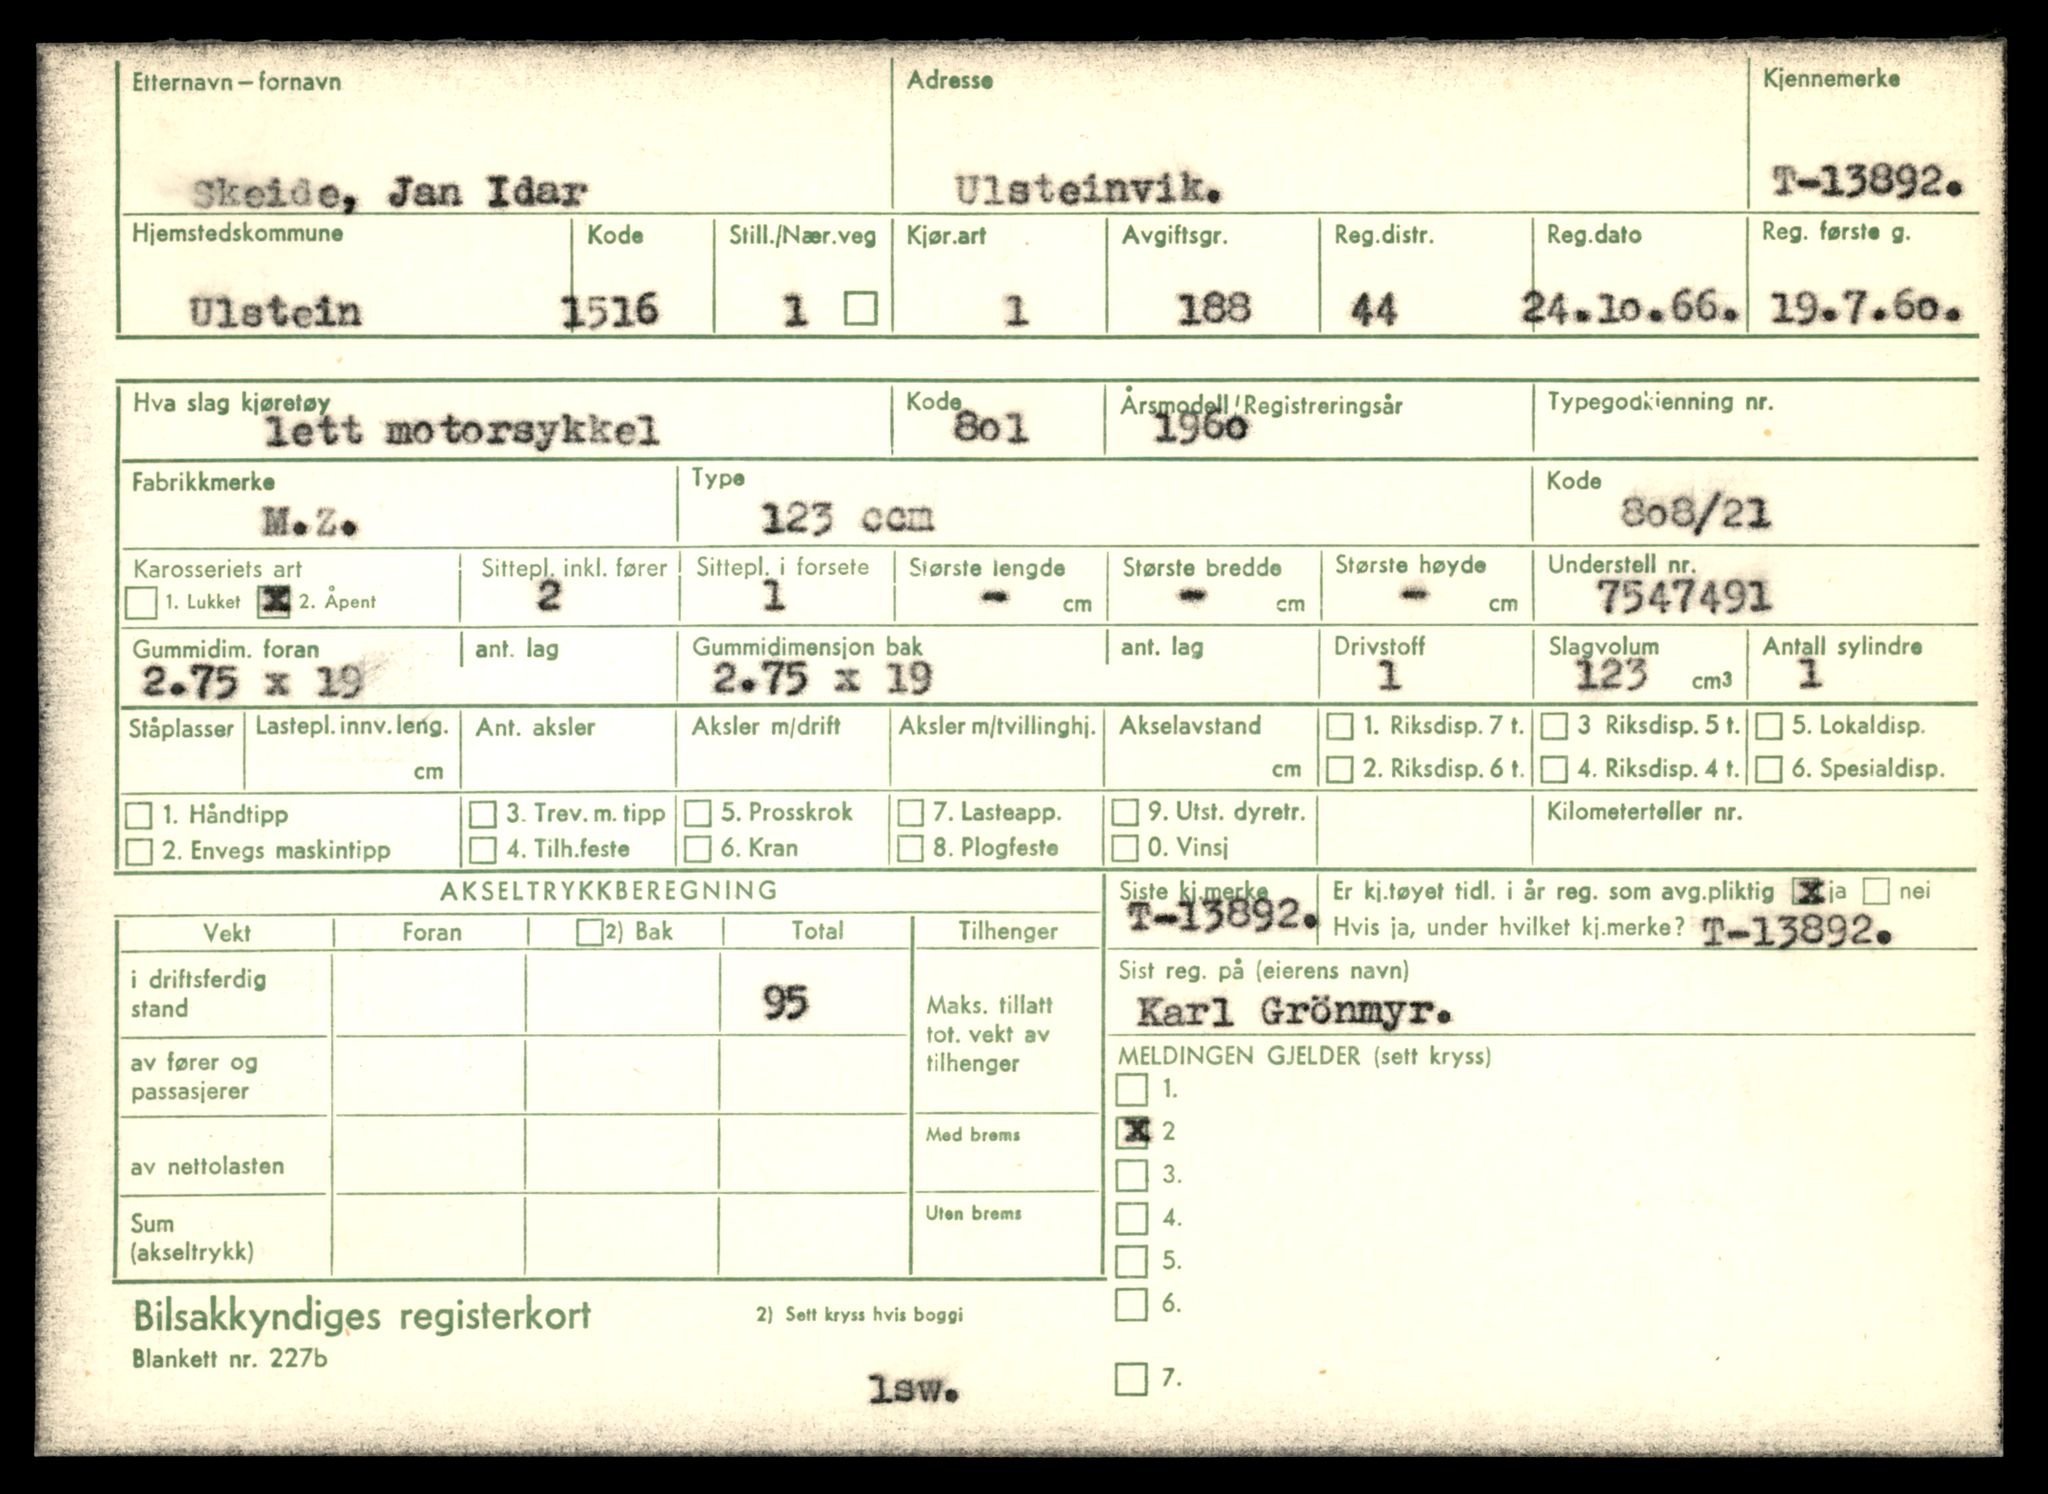 Etternavn – fornavn Adresse Kjennemerke
Skeide, Jan Idar Ulsteinvik. T-13892.
Hjemstedskommune Kode Still./Nær.veg Kjør.art Avgiftsgr. Reg.distr. Reg.dato Reg. første g.
Ulstein 1516 1 1 188 44 24.10.66. 19.7.60.
Hva slag kjøretøy Kode Årsmodell/Registreringsår Typegodkjenning nr.
lett motorsykkel 801 1960
Fabrikkmerke Type Kode
M.Z. 123 ccm 808/21
Karosseriets art Sittepl. inkl. fører Sittepl. i forsete Største lengde Største bredde Største høyde Understell nr.
1. Lukket X 2. Åpent 2 1 - cm - cm - cm 7547491
Gummidim. foran ant. lag Gummidimensjon bak ant. lag Drivstoff Slagvolum Antall sylindre
2.75 x 19 2.75 x 19 1 123 cm3 1
Ståplasser Lastepl. innv. leng. Ant. aksler Aksler m/drift Aksler m/tvillinghj. Akselavstand 1. Riksdisp. 7 t. 3 Riksdisp. 5 t. 5. Lokaldisp.
cm cm 2. Riksdisp. 6 t. 4. Riksdisp. 4 t. 6. Spesialdisp.
1. Håndtipp 3. Trev. m. tipp 5. Prosskrok 7. Lasteapp. 9. Utst. dyretr. Kilometerteller nr.
2. Envegs maskintipp 4. Tilh.feste 6. Kran 8. Plogfeste 0. Vinsj
AKSELTRYKKBEREGNING Siste kj.merke Er kj.tøyet tidl. i år reg. som avg.pliktig X ja nei
T-13892. Hvis ja, under hvilket kj.merke? T-13892.
Vekt Foran 2) Bak Total Tilhenger
Sist reg. på (eierens navn)
i driftsferdig
stand 95 Maks. tillatt
tot. vekt av
tilhenger
Karl Grönmyr.
av fører og
passasjerer
MELDINGEN GJELDER (sett kryss)
1.
Med brems X 2
av nettolasten 3.
Uten brems 4.
Sum
(akseltrykk) 5.
6.
Bilsakkyndiges registerkort 2) Sett kryss hvis boggi
Blankett nr. 227b
lsw. 7.